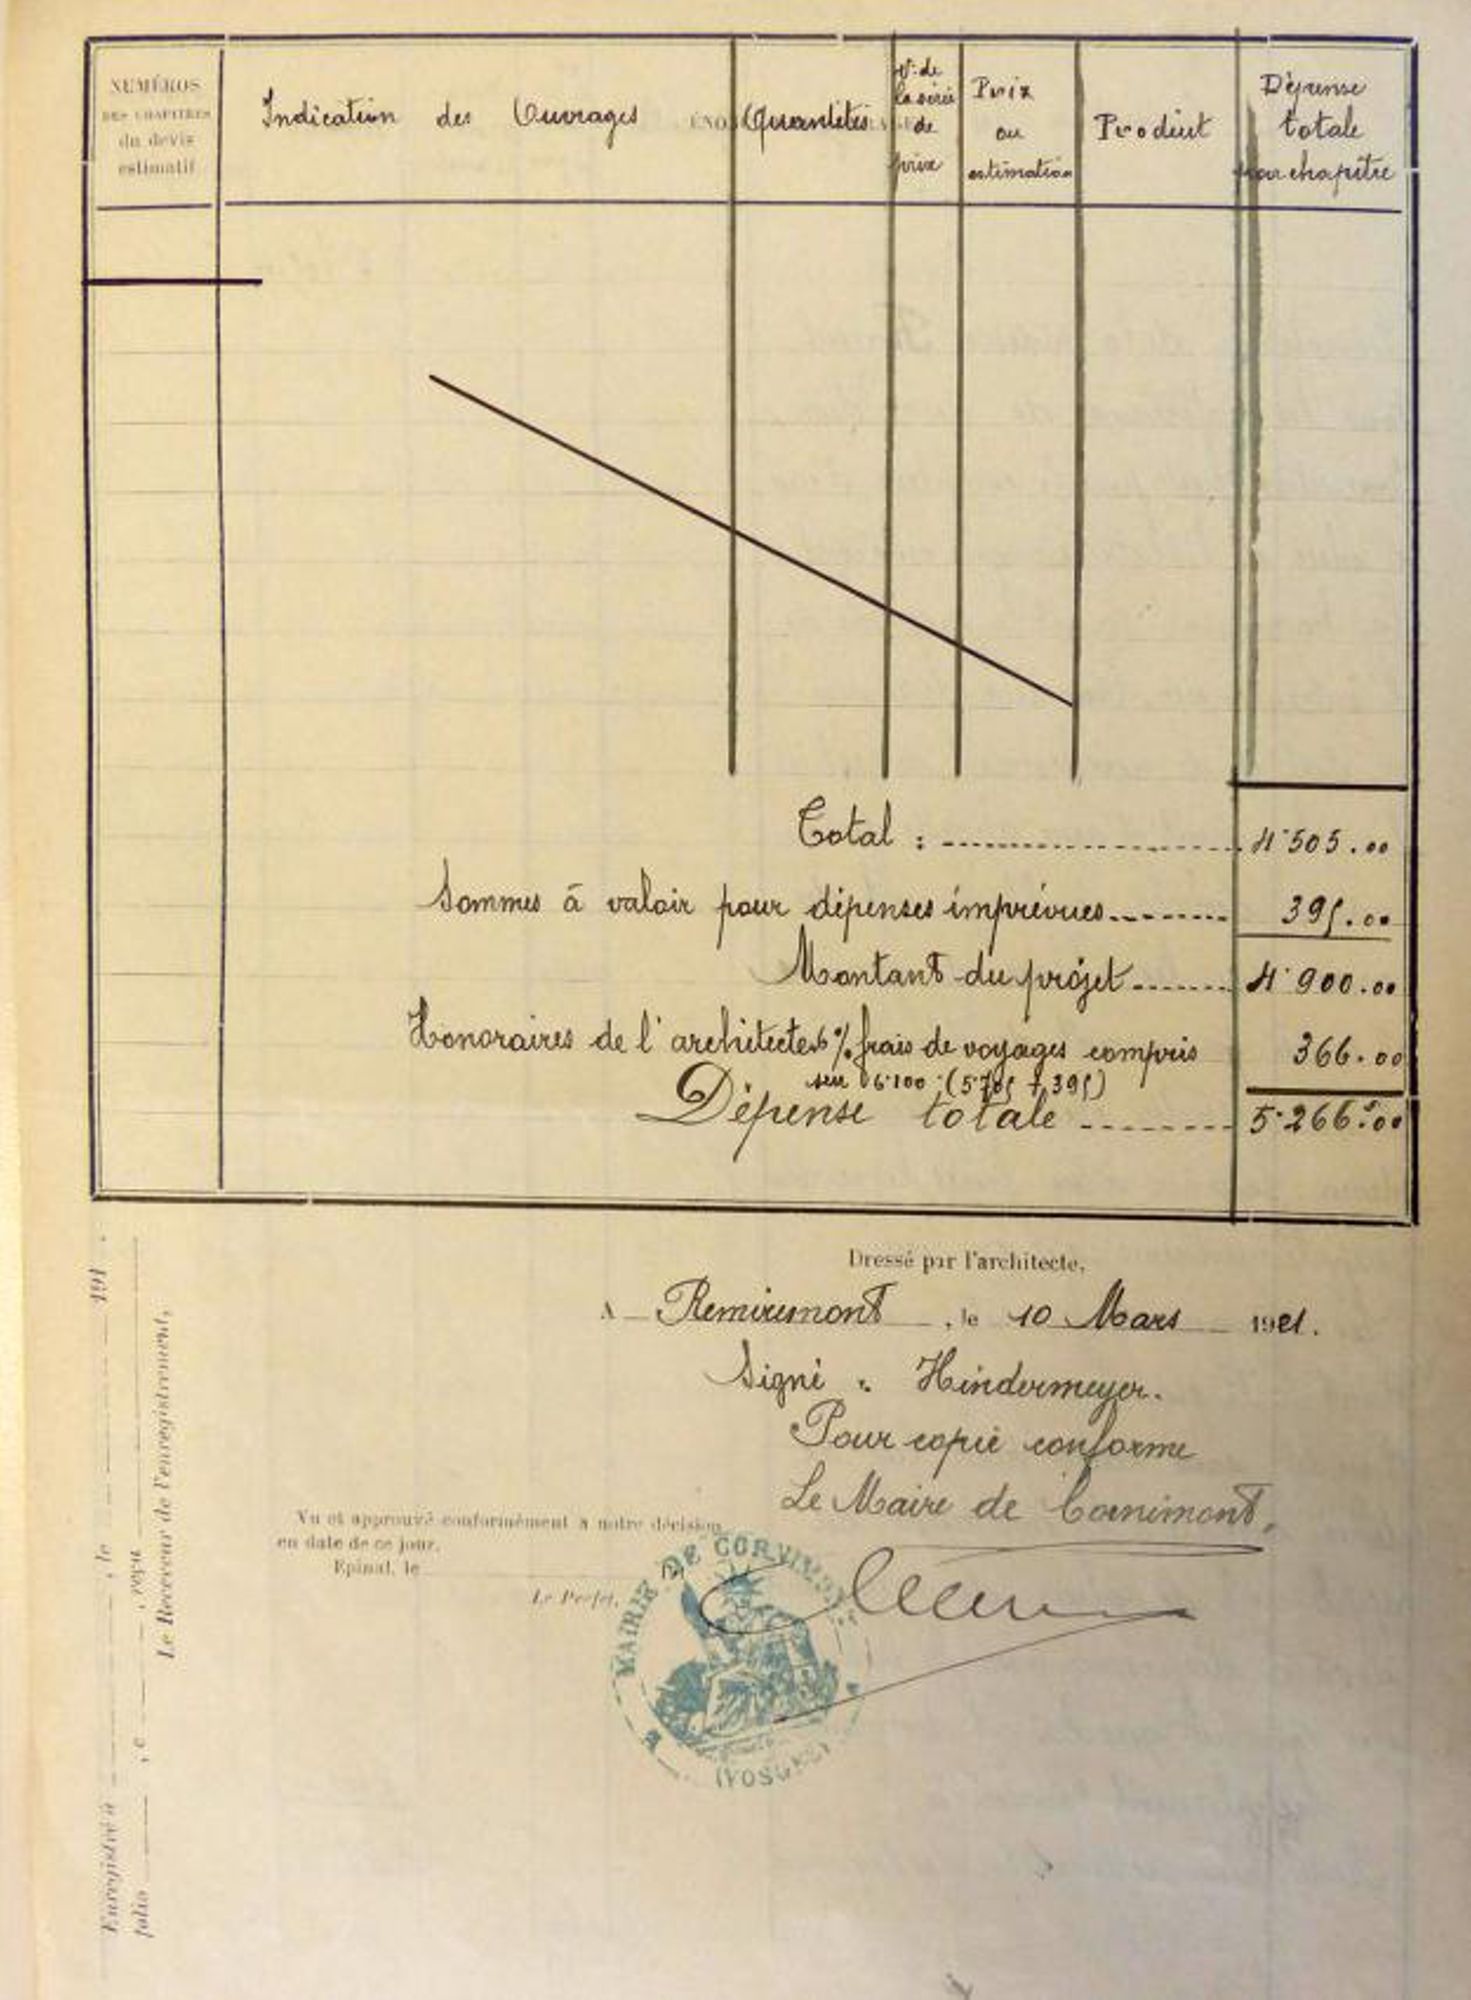 NUMÉROS
DES CHAPITRES
du devis
estimatif
Indication des Ouvrages
Quantités
Nº de
la série
de
prix
Prix
ou
estimation
Produit
Dépense
totale
par chapitre
Total : 4.505.00
Sommes à valoir pour dépenses imprévues 395.00
Montant du projet 4.900.00
Honoraires de l'architecte 6% frais de voyages compris 366.00
sur 6.100 (5.705 + 395)
Dépense totale 5.266.00
Dressé par l'architecte,
A Remiremont, le 10 Mars 1921.
Signé : Hindermeyer.
Pour copie conforme
Le Maire de Cornimont,
Vu et approuvé conformément à notre décision
en date de ce jour.
Epinal, le
Le Préfet,
MAIRIE DE CORNIMONT
(VOSGES)
Enregistré à , le 191 .
folio , c , reçu
Le Receveur de l'enregistrement,